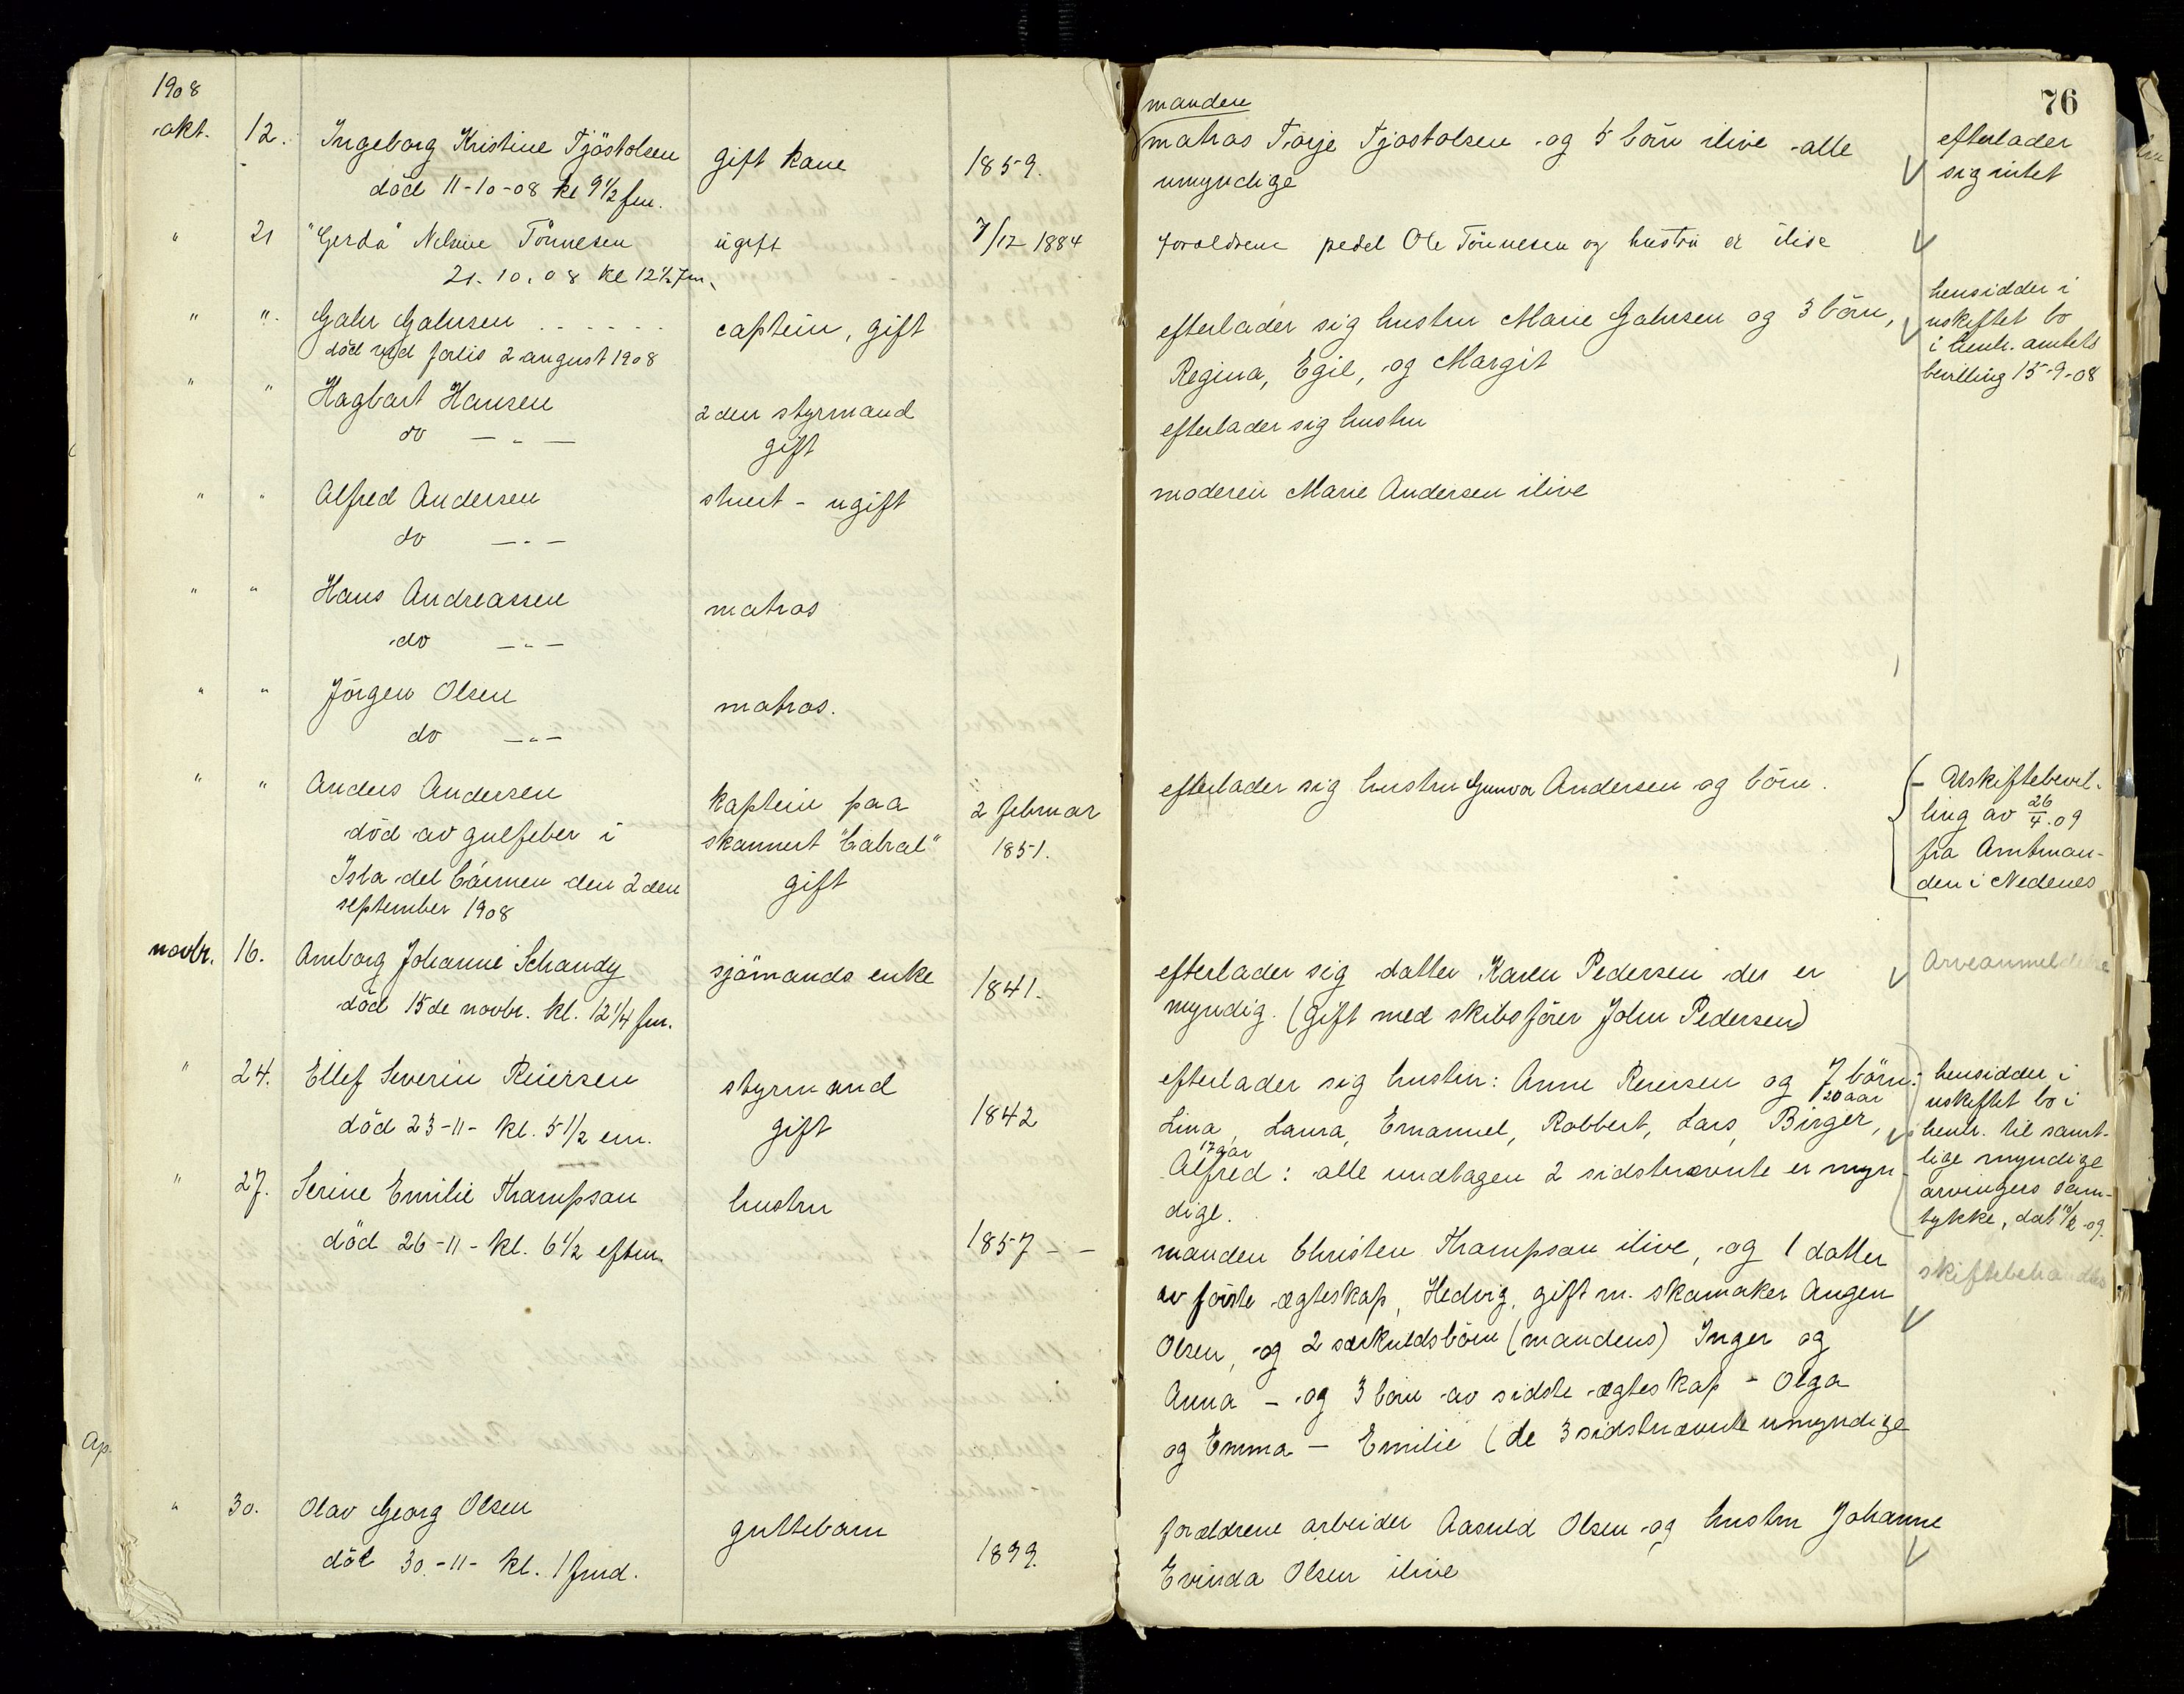 1908
76
okt. 12. Ingeborg Kristine Tjöstolsen gift kone 1859.
död 11-10-08 kl 9½ fm.
manden
matros Torje Tjostolsen og 5 börn ilive alle
umyndige
efterlader
sig intet
" 21 "Gerda" Nelsine Tönnesen ugift 7/12 1884
21.10.08 kl 12½ fm.
foraldrene pedel Ole Tönnesen og hustru er ilive
" " Gahr Gahrsen . . . . . . captein, gift
död ved forlis 2 august 1908
efterlader sig hustru Marie Gahrsen og 3 börn,
Regina, Egil, og Margit
hensidder i
uskiftet bo
i henh. amtets
bevilling 15-9-08
" " Hagbart Hansen 2den styrmand
do — " — gift
efterlader sig hustru
" " Alfred Andersen stuert - ugift
do — " —
moderen Marie Andersen ilive
" " Hans Andreassen matros
do — " —
" " Jörgen Olsen matros.
do — " —
" " Anders Andersen kaptein paa 2 februar
död av gulfeber i skonnert "Cabral" 1851.
Isla del Cármen den 2den gift
september 1908
efterlader sig hustru Gunvor Andersen og börn.
- Uskiftebevil-
ling av 26/4.09
fra Amtman-
den i Nedenes
novbr. 16. Amborg Johanne Schandy sjömands enke 1841.
död 15de novbr. kl. 12¼ fm.
efterlader sig datter Karen Pedersen der er
myndig. (gift med skibsförer John Pedersen)
Arveanmeldelse
" 24. Ellef Severin Reiersen styrmand 1842
död 23-11- kl. 5½ em. gift
efterlader sig hustru: Anne Reiersen og 7 börn:
20 aar
Lina, Laura, Emanuel, Robbert, Lars, Birger,
17 aar
Alfred: alle undtagen 2 sidstnævnte er myn-
dige.
hensidder i
uskiftet bo i
henh. til samt-
lige myndige
arvingers sam-
tykke, dat 10/2 09.
" 27. Serine Emilie Thompson hustru 1857 - -
död 26-11- kl. 6½ eftm.
manden Christen Thompson ilive, og 1 datter
av förste ægteskap, Hedvig, gift m. skomaker Augen
Olsen, og 2 særkuldsbörn (mandens) Inger og
Anna - og 3 börn av sidste ægteskap - Olga
og Emma - Emilie (de 3 sidstnævnte umyndige
skiftebehandles
Ap.
" 30. Olav Georg Olsen guttebarn 1899.
död 30.-11- kl. 1 fmd.
forældrene arbeider Aasuld Olsen og hustru Johanne
Evinda Olsen ilive